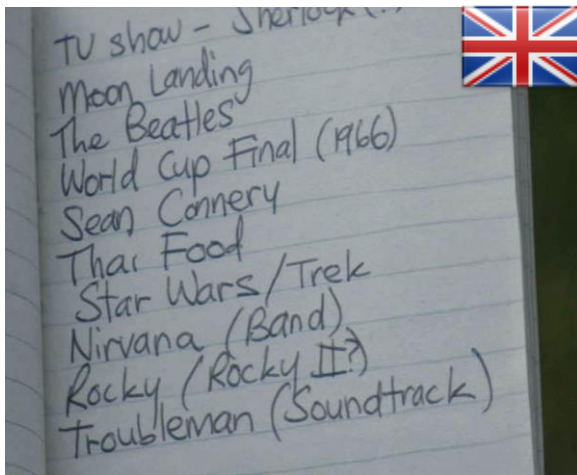 TV show - Sherlock (?)
Moon Landing
The Beatles
World Cup Final (1966)
Sean Connery
Thai Food
Star Wars/Trek
Nirvana (Band)
Rocky (Rocky II?)
Troubleman (Soundtrack)